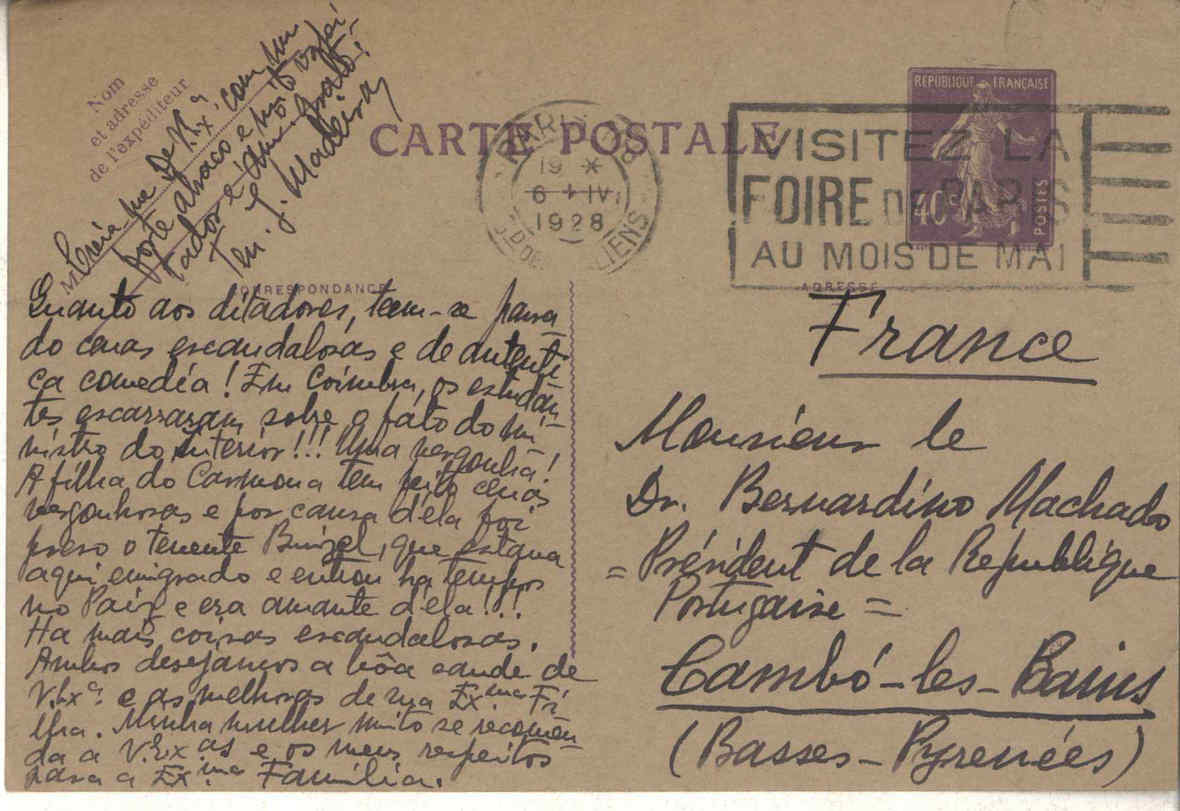 Nom
et adresse
de l'expéditeur
M
Creia que de V. Ex.ª com um
forte abraço e mto
admor e amº grato!
Ten. J. Madeira
CARTE POSTALE
PARIS
19 *
6 - IV
1928
VISITEZ LA
FOIRE DE PARIS
AU MOIS DE MAI
REPUBLIQUE FRANÇAISE
40c
POSTES
CORRESPONDANCE
ADRESSE
Quanto aos ditadores, teem-se passa
do cenas escandalosas e de autenti
ca comedia! Em Coimbra, os estudan-
tes escarraram sobre o fato do mi
nistro do interior!!! Uma vergonha!
A filha do Carmona tem feito cenas
vergonhosas e por causa déla foi
preso o tenente que estava
aqui emigrado e entrou ha tempos
no Paiz e era amante déla!!!
Ha mais coisas escandalosas.
Ambos desejamos a bôa saude de
V. Exª. e as melhoras de sua Ex.ma Fi
lha. Minha mulher muito se recomen
da a V. Ex.as e os meus respeitos
para a Ex.ma Familia.
France
Monsieur le
Dr. Bernardino Machado
= Président de la République
Portugaise =
Cambó-les-Bains
(Basses-Pyrenées)